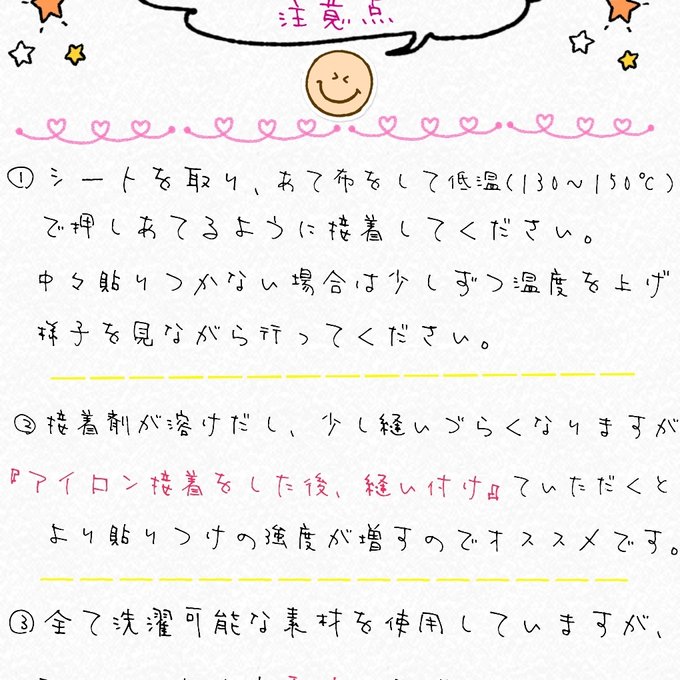 注意点
① シートを取り、あて布をして低温(130～150℃)
で押しあてるように接着してください。
中々貼りつかない場合は少しずつ温度を上げ
様子を見ながら行ってください。
② 接着剤が溶けだし、少し縫いづらくなりますが
『アイロン接着をした後、縫い付け』ていただくと
より貼りつけの強度が増すのでオススメです。
③ 全て洗濯可能な素材を使用していますが、